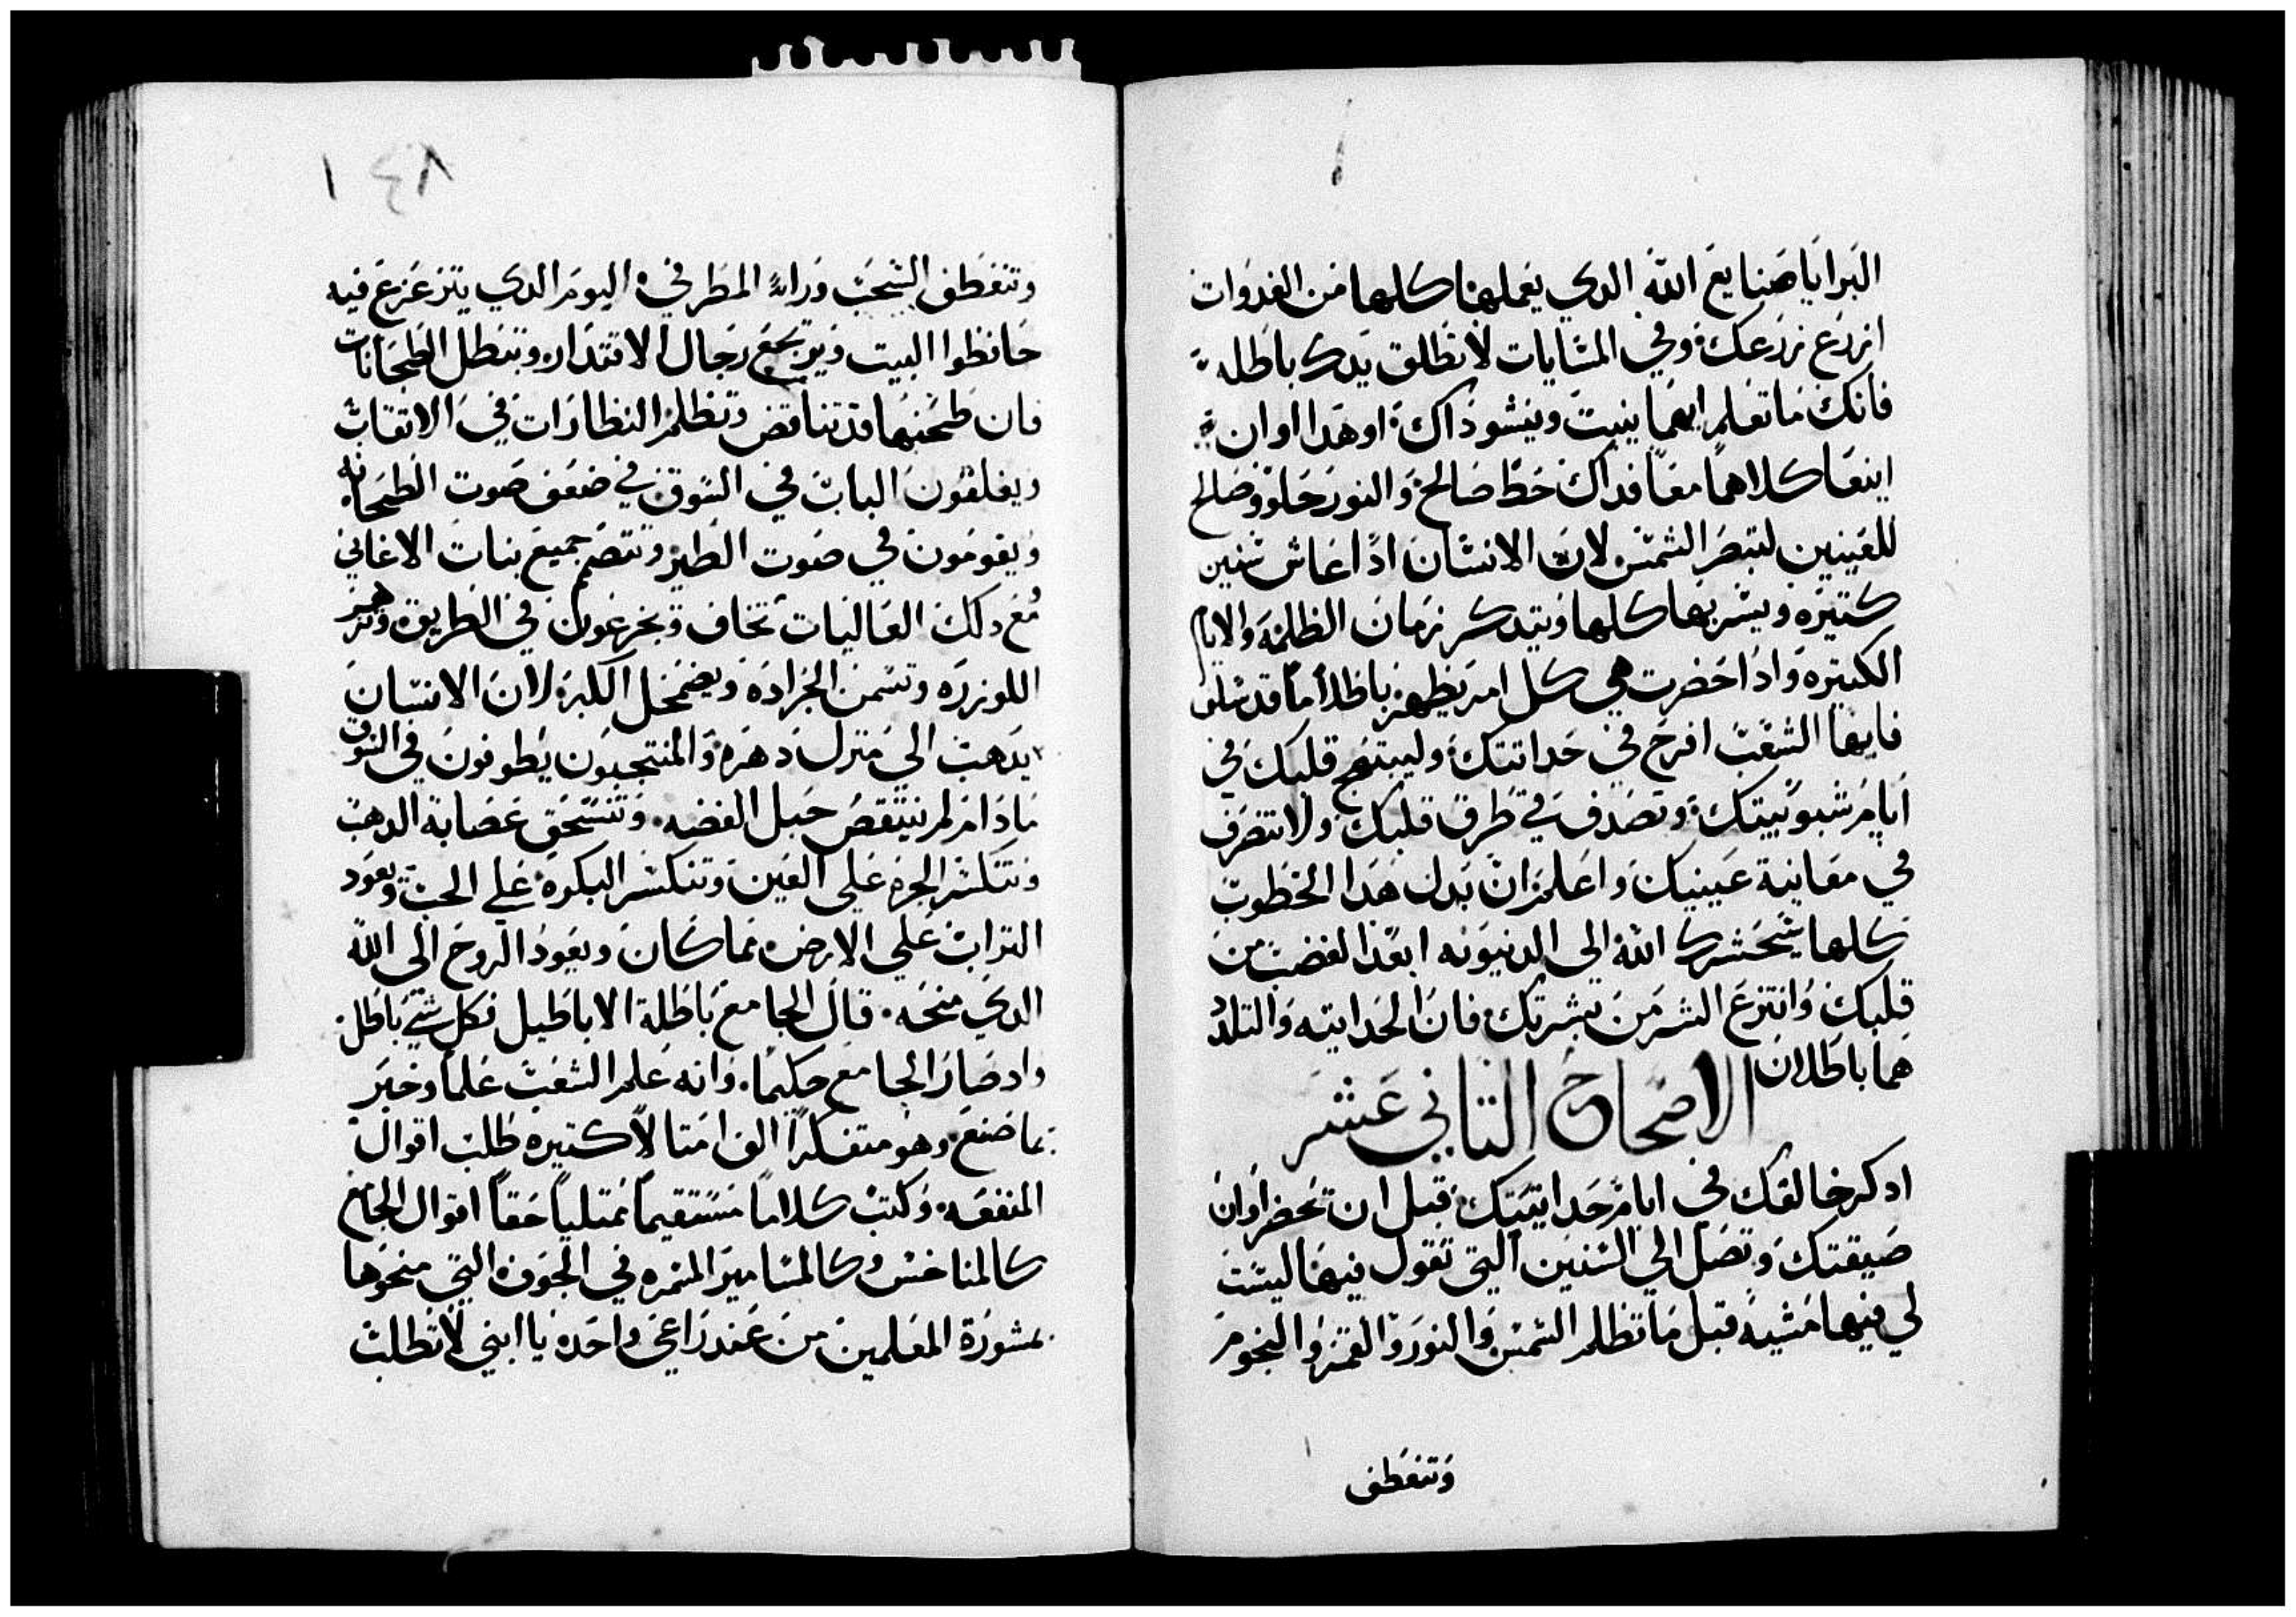 البرايا صنايع الله الدي يعملها كلها من الغدوات
ازرع زرعك وفي المشايات لا تطلق يدك باطله
فانك ما تعلم ايهما ينبت وينشو داك او هدا او ان
اينعا كلاهما معا فداك حظ صالح والنور حلو وصالح
للعينين لتبصر الشمس لان الانسان ادا عاش سنين
كتيره ويسر بها كلها ويتدكر زمان الظلمه والايام
الكتيره وادا حضرت هي كل امر يظهر باطلا ما قد سلف
فايها الشعب افرح في حداتتك وليبتهج قلبك في
ايام شبوبيتك وتصدف في طرق قلبك ولا تتصرف
في معاينة عينيك واعلم ان بدل هدا الخطوب
كلها يحشرك الله الى الدنيونه ابعد الغضب من
قلبك وانتزع الشر من بشرتك فان الحدايته والتلدد
هما باطلان
الاصحاح التاني عشر
ادكر خالقك في ايام حدايتيك قبل ان تحضر اوان
ضيقتك وتصل الي السنين التي تقول فيها ليست
لي فيها مشيه قبل ما تظلم الشمس والنور والقمر والنجوم
وتنعطف
١٨٤
وتنعطف السحب وراء المطر في اليوم الدي يتزعزع فيه
حافظوا البيت ويرتجع رجال الاقتدار وتبطل الطحانات
فان طحنهما قد تناقص وتظلم النظارات في الاتقاب
ويغلقون الباب في السوق في ضعف صوت الطحانه
ويقومون في صوت الطير وتتصم جميع بنات الاغاني
مع دلك العاليات تخاف ويجزعون في الطريق وتزهر
اللوزره وتسمن الجراده ويضمحل الكبر لان الانسان
يدهب الي منزل دهره والمنتجبون يطوفون في السوق
ما دام لم ينتقص حبل الفضه وتنسحق عصابة الدهب
وتتكسر الجره على العين وتنكسر البكره علي الجب ويعود
التراب علي الارض كما كان ويعود الروح الى الله
الدي منحه قال الجامع باطلة الاباطيل فكل شي باطل
واد صار الجامع حكيما وانه علم الشعب علما وخبر
بما صنع وهو متفكرا الف امتالا كتيره طلب اقوال
المنفعه وكتب كلاما مستقيما ممتليا حقا اقوال الجامع
كالمناخس وكالمسامير المتمره في الجوف التي منحوها
بمشورة المعلمين من عند راعي واحده يا ابني لا تطلب